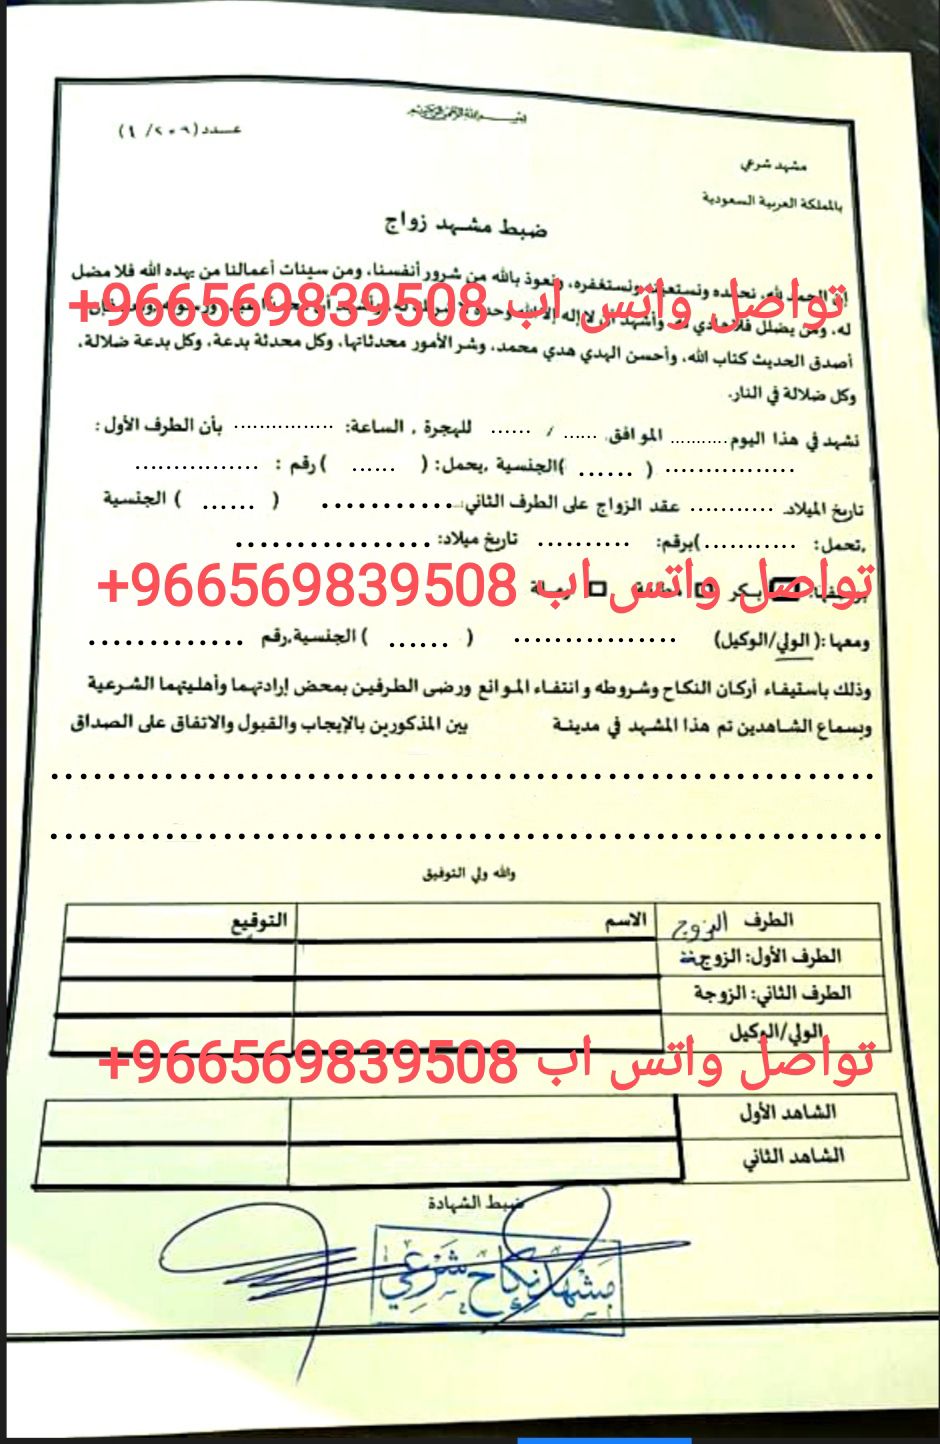 بسم الله الرحمن الرحيم
عـدد (٢٠٩ /١)
مشهد شرعي
بالمملكة العربية السعودية
ضبط مشهد زواج
إن الحمد لله، نحمده ونستعينه ونستغفره، ونعوذ بالله من شرور أنفسنا، ومن سيئات أعمالنا من يهده الله فلا مضل
تواصل واتس اب 966569839508+
له، ومن يضلل فلا هادي له وأشهد أن لا إله إلا الله وحده لا شريك له
أصدق الحديث كتاب الله، وأحسن الهدي هدي محمد، وشر الأمور محدثاتها، وكل محدثة بدعة، وكل بدعة ضلالة،
وكل ضلالة في النار.
نشهد في هذا اليوم........... الموافق ...... / ...... للهجرة , الساعة: ................ بأن الطرف الأول:
................ ( ...... )الجنسية ,يحمل: ( ...... ) رقم : ................
تاريخ الميلاد ............ عقد الزواج على الطرف الثاني: ............ ( ...... ) الجنسية
,تحمل: (............)برقم: .......... تاريخ ميلاد: ................
بكر مطلقة
تواصل واتس اب 966569839508+
ومعها :( الولي/الوكيل) ................ ( ...... ) الجنسية,رقم .............
وذلك باستيفاء أركان النكاح وشروطه وانتفاء الموانع ورضى الطرفين بمحض إرادتهما وأهليتهما الشرعية
وبسماع الشاهدين تم هذا المشهد في مدينة بين المذكورين بالإيجاب والقبول والاتفاق على الصداق
................................................
................................................
والله ولي التوفيق
الطرف الزوج الاسم التوقيع
الطرف الأول: الزوج
الطرف الثاني: الزوجة
الولي/الوكيل
تواصل واتس اب 966569839508+
الشاهد الأول
الشاهد الثاني
ضبط الشهادة
مشهد نكاح شرعي